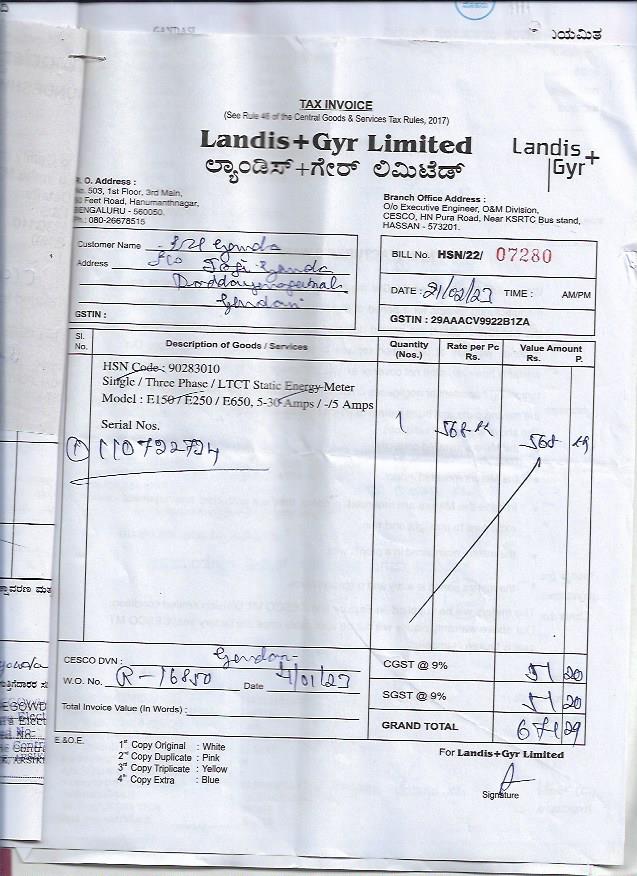 TAX INVOICE
(See Rule 46 of the Central Goods & Services Tax Rules, 2017)
Landis+Gyr Limited
ಲ್ಯಾಂಡಿಸ್+ಗೇರ್ ಲಿಮಿಟೆಡ್
Landis+
Gyr
R. O. Address :
No. 503, 1st Floor, 3rd Main,
Feet Road, Hanumanthnagar,
BENGALURU - 560050.
Ph.: 080-26678515
Branch Office Address :
O/o Executive Engineer, O&M Division,
CESCO, HN Pura Road, Near KSRTC Bus stand,
HASSAN - 573201.
Customer Name
Address
GSTIN :
BILL No. HSN/22/ 07280
DATE : 21/02/23 TIME : AM/PM
GSTIN : 29AAACV9922B1ZA
Sl. No. Description of Goods / Services Quantity (Nos.) Rate per Pc Rs. Value Amount Rs. P.
HSN Code : 90283010
Single / Three Phase / LTCT Static Energy-Meter
Model : E150 / E250 / E650, 5-30 Amps / -/5 Amps
Serial Nos.
1 110722724 1
CESCO DVN :
W.O. No. R-16850 Date
Total Invoice Value (In Words) :
CGST @ 9% 51 20
SGST @ 9% 51 20
GRAND TOTAL 671 29
E.&O.E.
1st Copy Original : White
2nd Copy Duplicate : Pink
3rd Copy Triplicate : Yellow
4th Copy Extra : Blue
For Landis+Gyr Limited
Signature